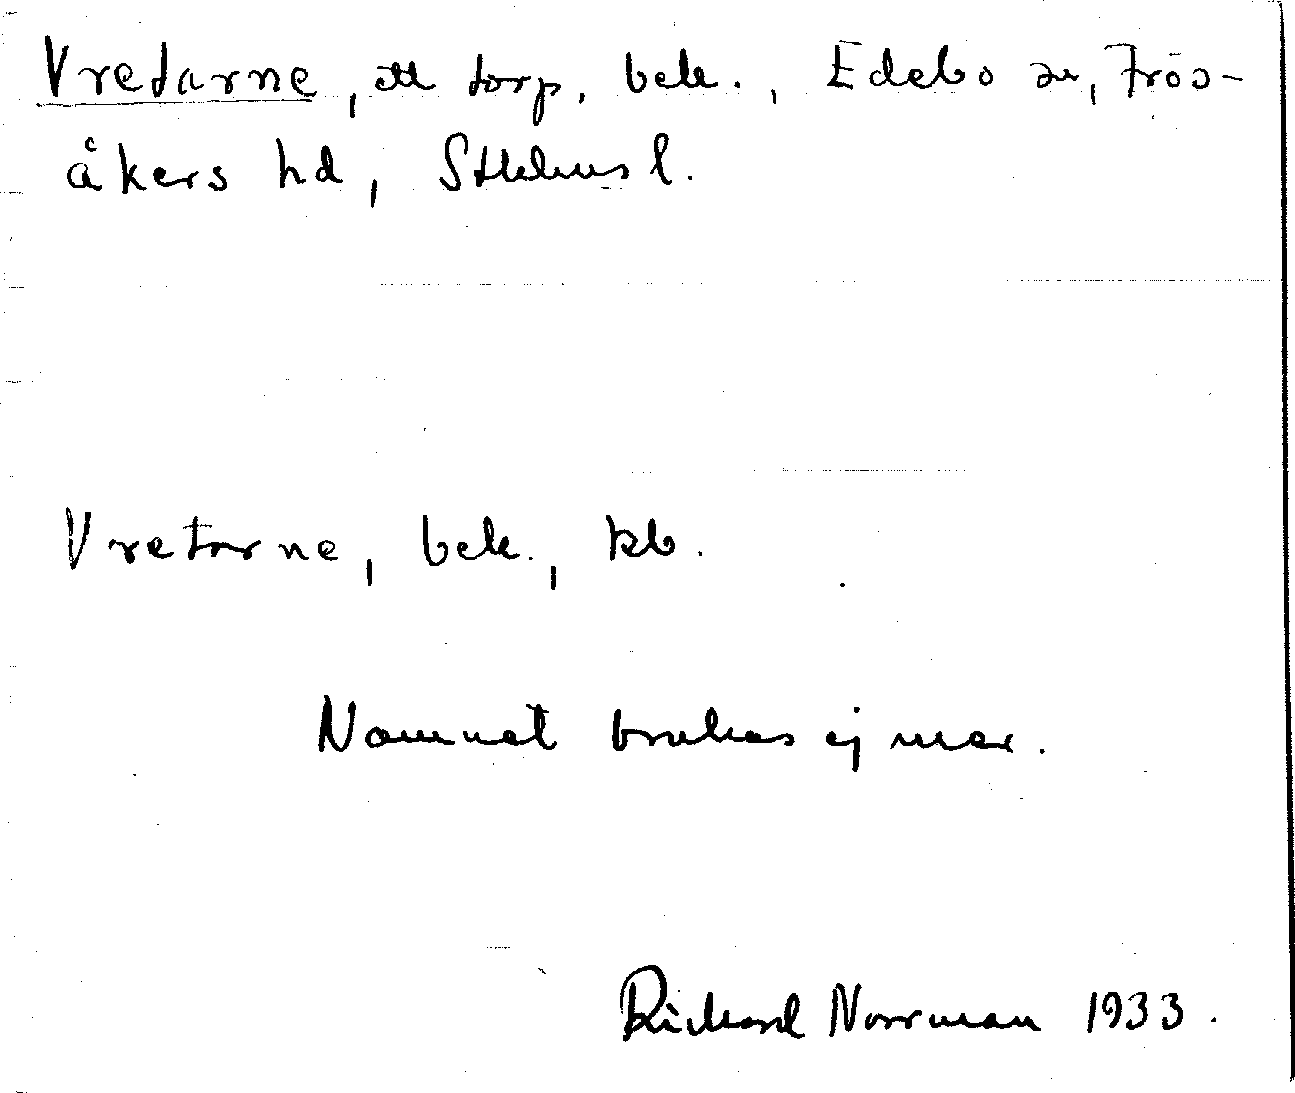 Vretarne, ett torp, bek., Edebo sn, Frös-
åkers hd, Sthlms l.
Vretarne, bek., kb.
Namnet brukas ej mer.
Richard Norrman 1933.